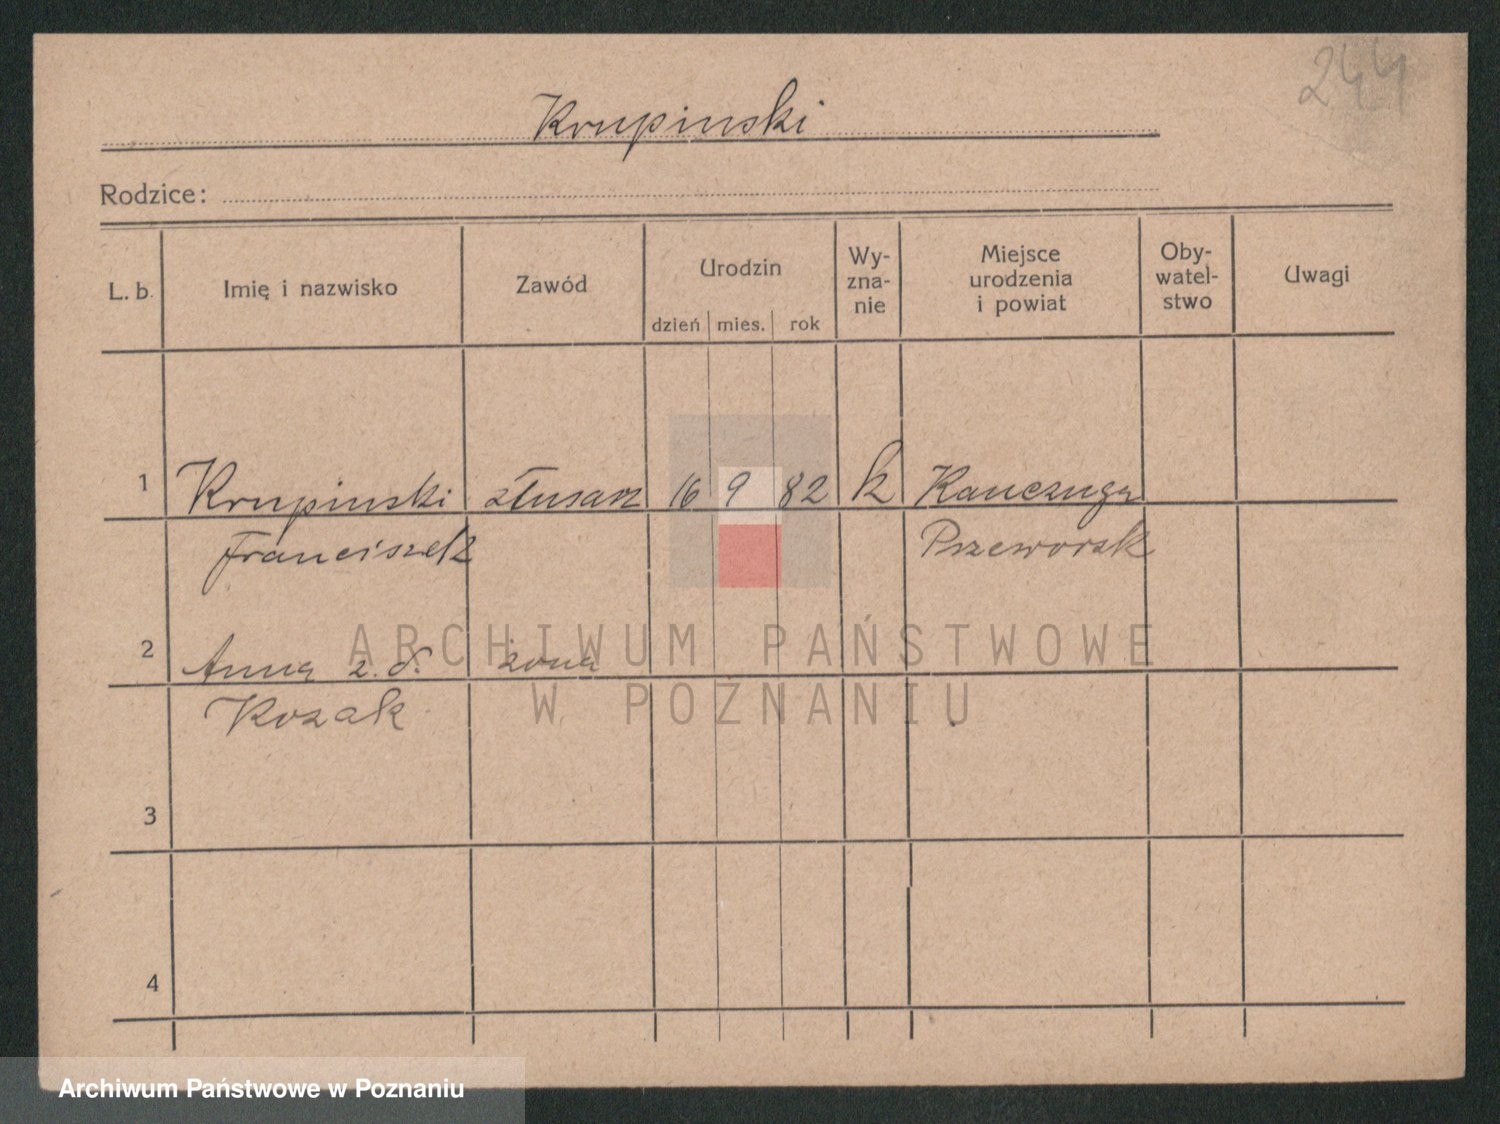 244
Krupinski
Rodzice:
L. b. Imię i nazwisko Zawód Urodzin Wy- Miejsce Oby- Uwagi
zna- urodzenia watel-
nie i powiat stwo
dzień mies. rok
1 Krupinski złusarz 16 9 82 k Kanczuga
Franciszek Przeworsk
2 Anna z. d. żona
Kozak
3
4
ARCHIWUM PAŃSTWOWE
W POZNANIU
Archiwum Państwowe w Poznaniu